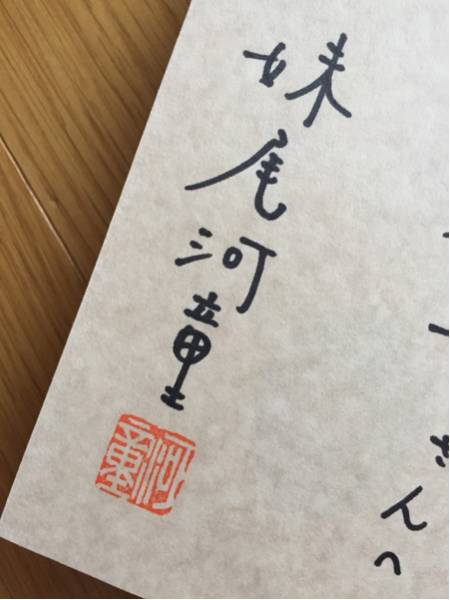 さんへ
妹尾河童
河童